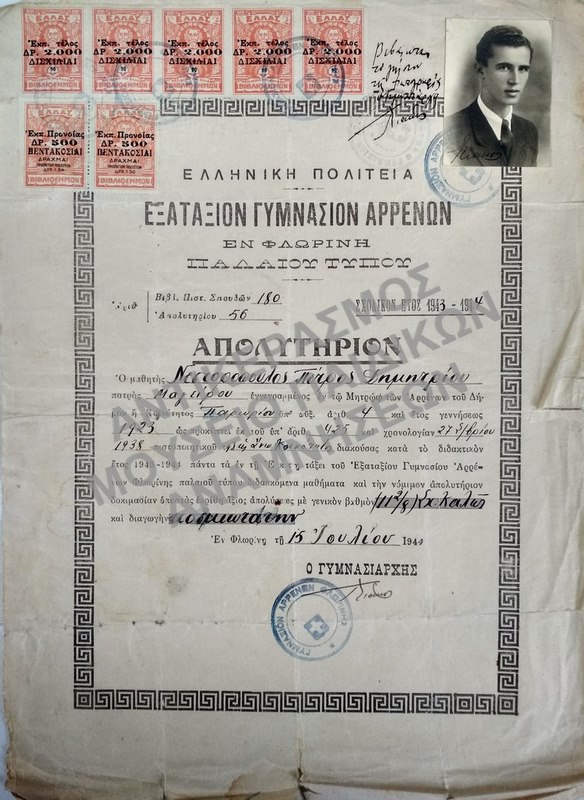 ΕΛΛΑΣ ΕΛΛΑΣ ΕΛΛΑΣ ΕΛΛΑΣ ΕΛΛΑΣ
Εκπ. τέλος Εκπ. τέλος Εκπ. τέλος Εκπ. τέλος Εκπ. τέλος
ΔΡ. 2.000 ΔΡ. 2.000 ΔΡ. 2.000 ΔΡ. 2.000 ΔΡ. 2.000
ΔΙΣΧΙΛΙΑΙ ΔΙΣΧΙΛΙΑΙ ΔΙΣΧΙΛΙΑΙ ΔΙΣΧΙΛΙΑΙ ΔΙΣΧΙΛΙΑΙ
ΒΙΒΛΙΟΣΗΜΟΝ ΒΙΒΛΙΟΣΗΜΟΝ ΒΙΒΛΙΟΣΗΜΟΝ ΒΙΒΛΙΟΣΗΜΟΝ ΒΙΒΛΙΟΣΗΜΟΝ
Εκπ. Προνοίας Εκπ. Προνοίας
ΔΡ. 500 ΔΡ. 500
ΠΕΝΤΑΚΟΣΙΑΙ ΠΕΝΤΑΚΟΣΙΑΙ
ΔΡΑΧΜΑΙ ΔΡΑΧΜΑΙ
ΒΙΒΛΙΟΣΗΜΟΝ ΒΙΒΛΙΟΣΗΜΟΝ
ΕΛΛΗΝΙΚΗ ΠΟΛΙΤΕΙΑ
ΕΞΑΤΑΞΙΟΝ ΓΥΜΝΑΣΙΟΝ ΑΡΡΕΝΩΝ
ΕΝ ΦΛΩΡΙΝΗ
ΠΑΛΑΙΟΥ ΤΥΠΟΥ
Ἀριθ Βιβλ. Πιστ. Σπουδῶν 180
Ἀπολυτηρίου 56
ΣΧΟΛΙΚΟΝ ΕΤΟΣ 1943 - 1944
ΑΠΟΛΥΤΗΡΙΟΝ
Ὁ μαθητὴς Πέτρος Δημητρίου
πατρὸς Μαγείρου ἐγγεγραμμένος ἐν τῷ Μητρώῳ τῶν Ἀρρένων τοῦ Δή-
ὑπ' αὔξ. ἀριθ 4 καὶ ἔτος γεννήσεως
1923 ὡς προκύπτει ἐκ τοῦ ὑπ' ἀριθ 425 καὶ χρονολογίαν 27
1938 διακούσας κατὰ τὸ διδακτικὸν
ἔτος 1943-1944 πάντα τὰ ἐν τῇ Ἕκτῃ τάξει τοῦ Ἑξαταξίου Γυμνασίου Ἀρρέ-
νων Φλωρίνης παλαιοῦ τύπου διδασκόμενα μαθήματα καὶ τὴν νόμιμον ἀπολυτήριον
δοκιμασίαν ὑποστὰς ἐκρίθη ἄξιος ἀπολύσεως μὲ γενικὸν βαθμὸν Καλῶς
καὶ διαγωγὴν κοσμιωτάτην
Ἐν Φλωρίνῃ τῇ 15 Ἰουλίου 1944
Ο ΓΥΜΝΑΣΙΑΡΧΗΣ
ΓΥΜΝΑΣΙΟΝ ΑΡΡΕΝΩΝ ΦΛΩΡΙΝΗΣ
ΜΟΥΣΕΙΟ ΠΑΙΔΙΚΩΝ
ΑΝΑΜΝΗΣΕΩΝ